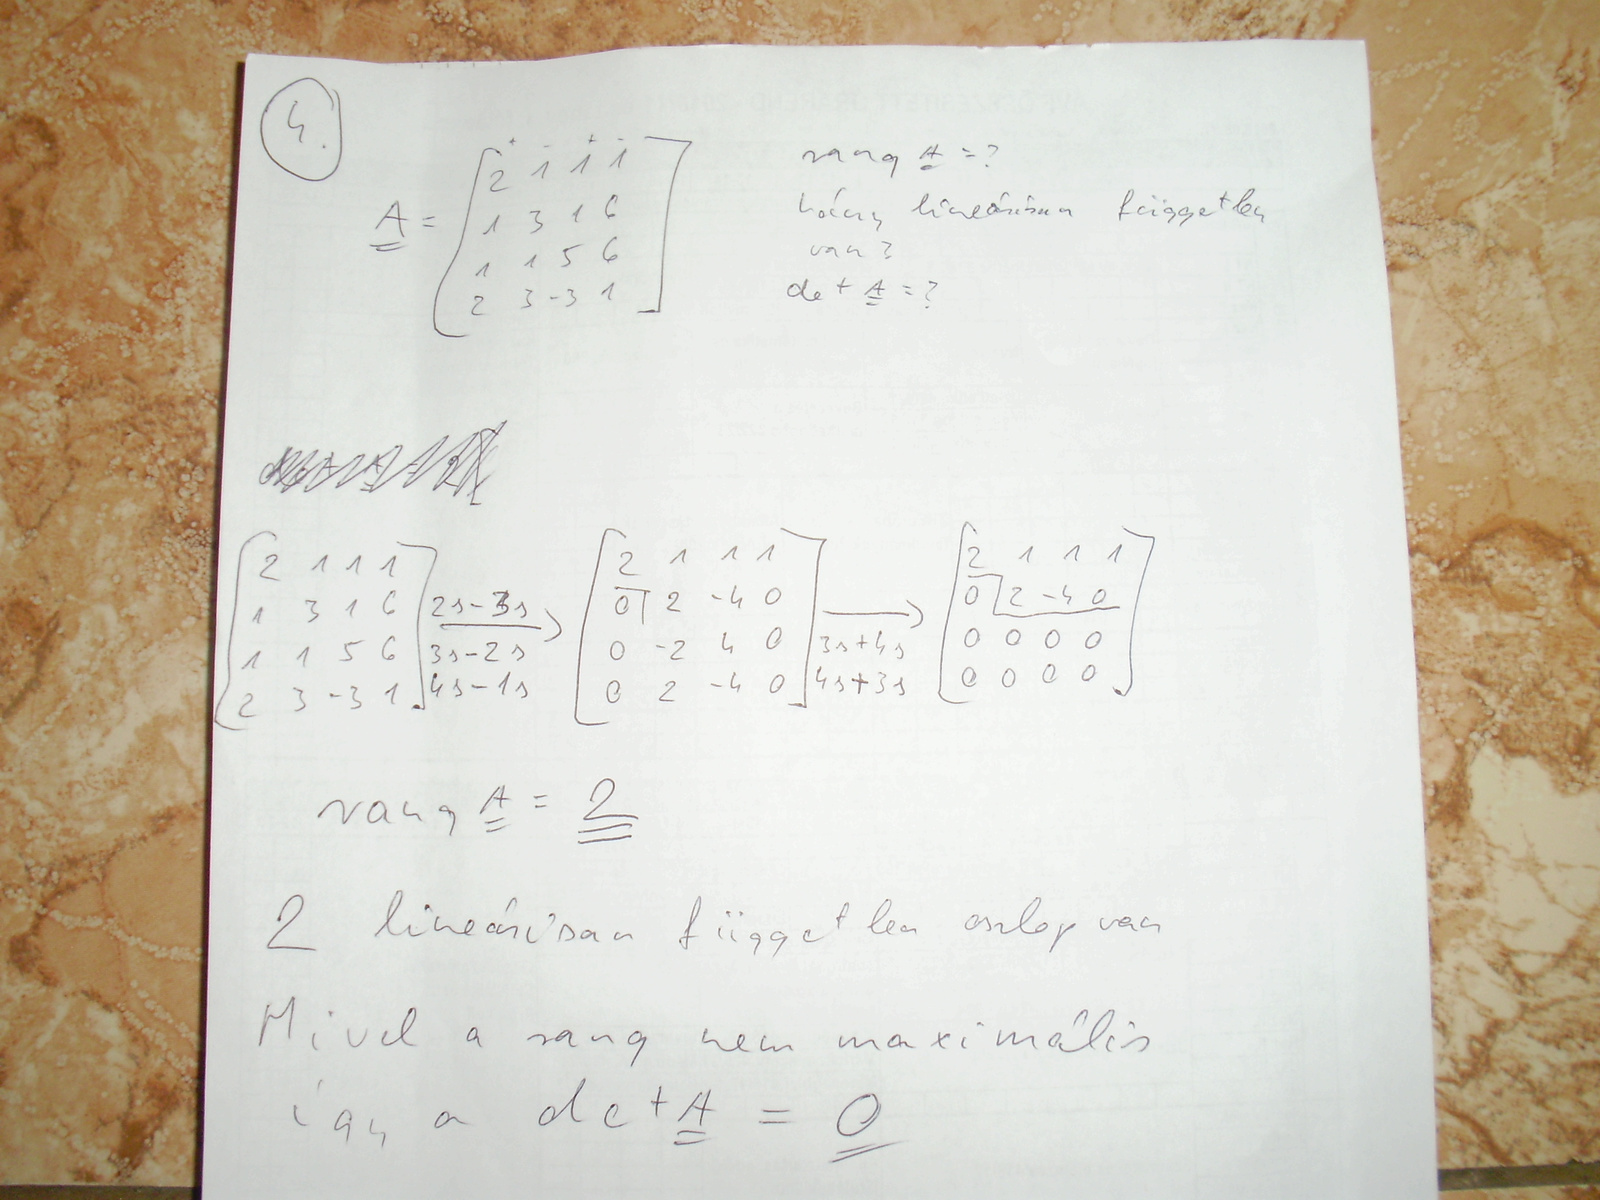 4.
A = [2 1 1 1
1 3 1 6
1 1 5 6
2 3 -3 1]
+ - + -
rang A = ?
hány lineárisan független
van?
det A = ?
[2 1 1 1
1 3 1 6
1 1 5 6
2 3 -3 1]
2s-3s
3s-2s
4s-1s
[2 1 1 1
0 2 -4 0
0 -2 4 0
0 2 -4 0]
3s+4s
4s+3s
[2 1 1 1
0 2 -4 0
0 0 0 0
0 0 0 0]
rang A = 2
2 lineárisan független oszlop van
Mivel a rang nem maximális
így a det A = 0